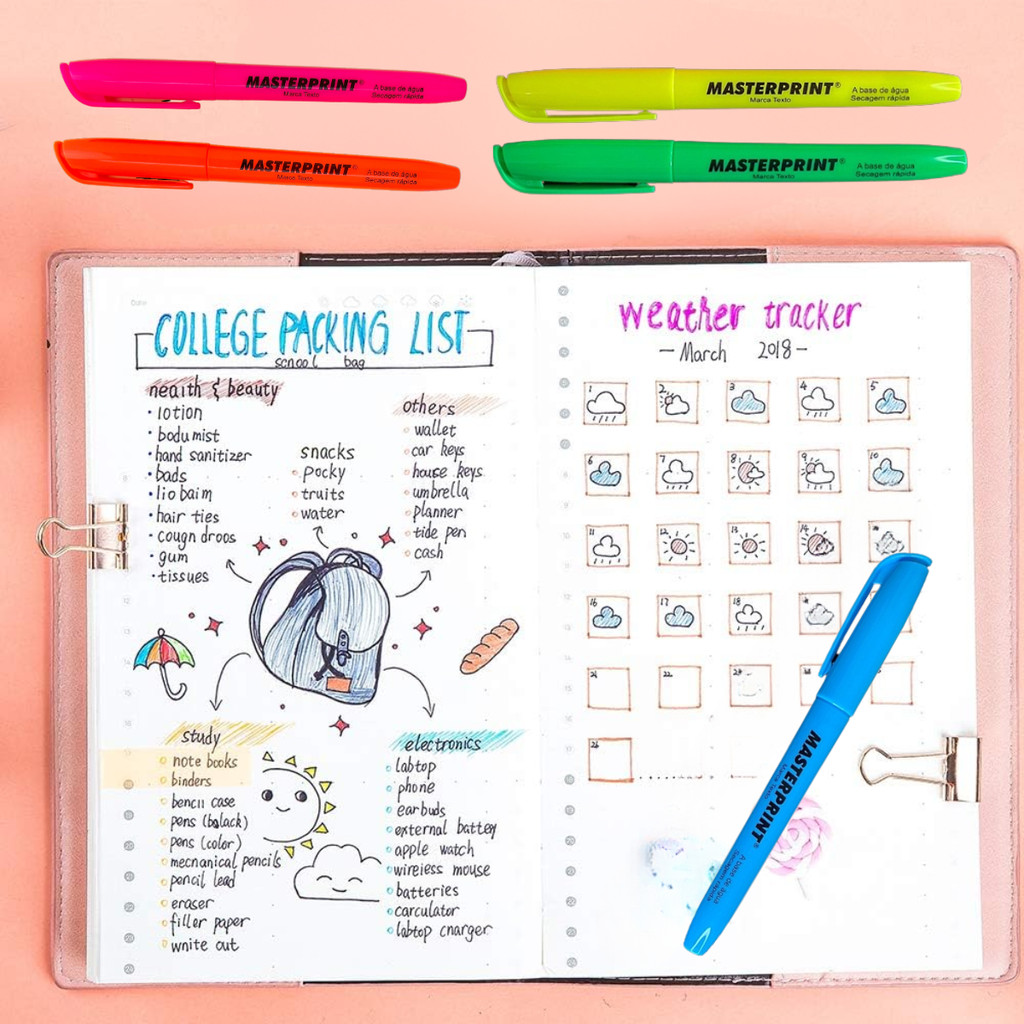 MASTERPRINT®
Marca Texto
A base de água
Secagem rápida
MASTERPRINT®
Marca Texto
A base de água
Secagem rápida
MASTERPRINT®
Marca Texto
A base de água
Secagem rápida
MASTERPRINT®
Marca Texto
A base de água
Secagem rápida
Date
COLLEGE PACKING LIST
scnool bag
neaith & beauty
• lotion
• bodumist
• hand sanitizer
• bads
• lio baim
• hair ties
• cougn droos
• gum
• tissues
snacks
pocky
truits
water
others
wallet
car keys
house keys
umbrella
planner
tide pen
cash
study
note books
binders
bencil case
pens (balack)
pens (color)
mecnanical pencils
pencil lead
eraser
filler paper
wnite out
electronics
labtop
phone
earbuds
external battey
apple watch
wireiess mouse
batteries
carculator
labtop cnarger
weather tracker
- March 2018 -
1 2 3 4 5
6 7 8 9 10
11 12 13 14
16 17 18
21 22
26
MASTERPRINT®
Marca Texto
A base de água
Secagem rápida